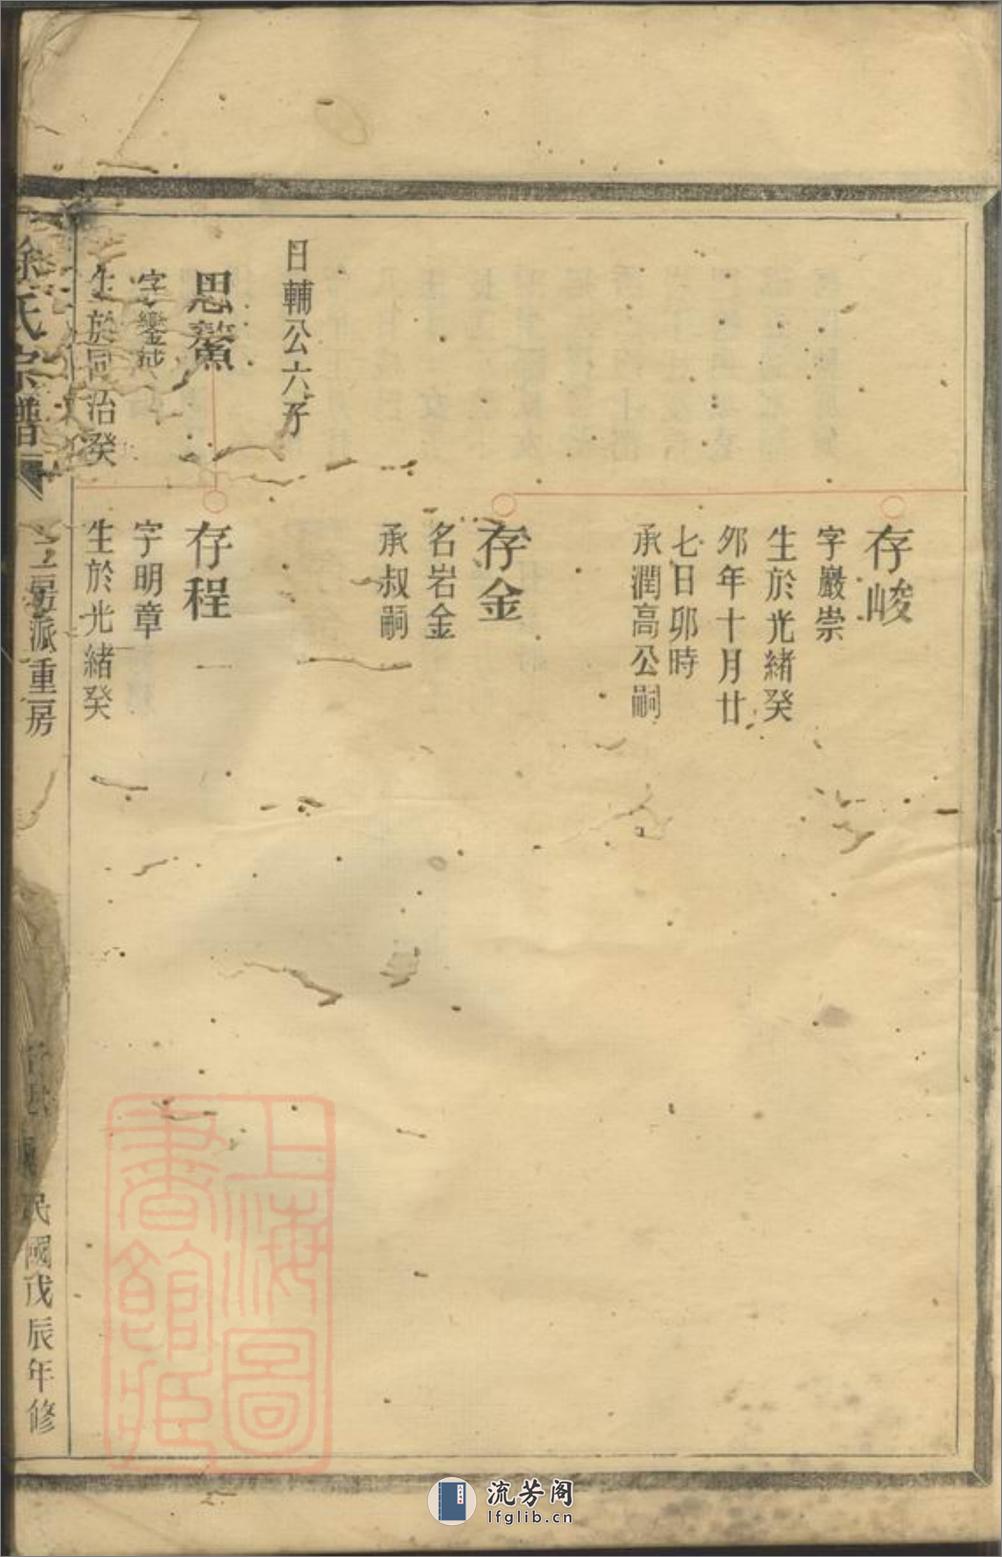 存峻
字巖崇
生於光緒癸
夘年十月廿
七日卯時
承潤高公嗣
存金
名岩金
承叔嗣
日輔公六子
思鰲
字鑾
生於同治癸
存程
字明章
生於光緒癸
徐氏宗譜
二房派重房
民國戊辰年修
上海圖書館藏
流芳阁
lfglib.cn